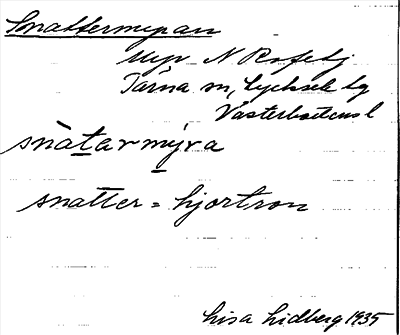 Snattermyran
Myr N
Tärna sn, Lycksele lg
Västerbottens l
snàtarmýra
snatter = hjortron
Lisa Lidberg 1935